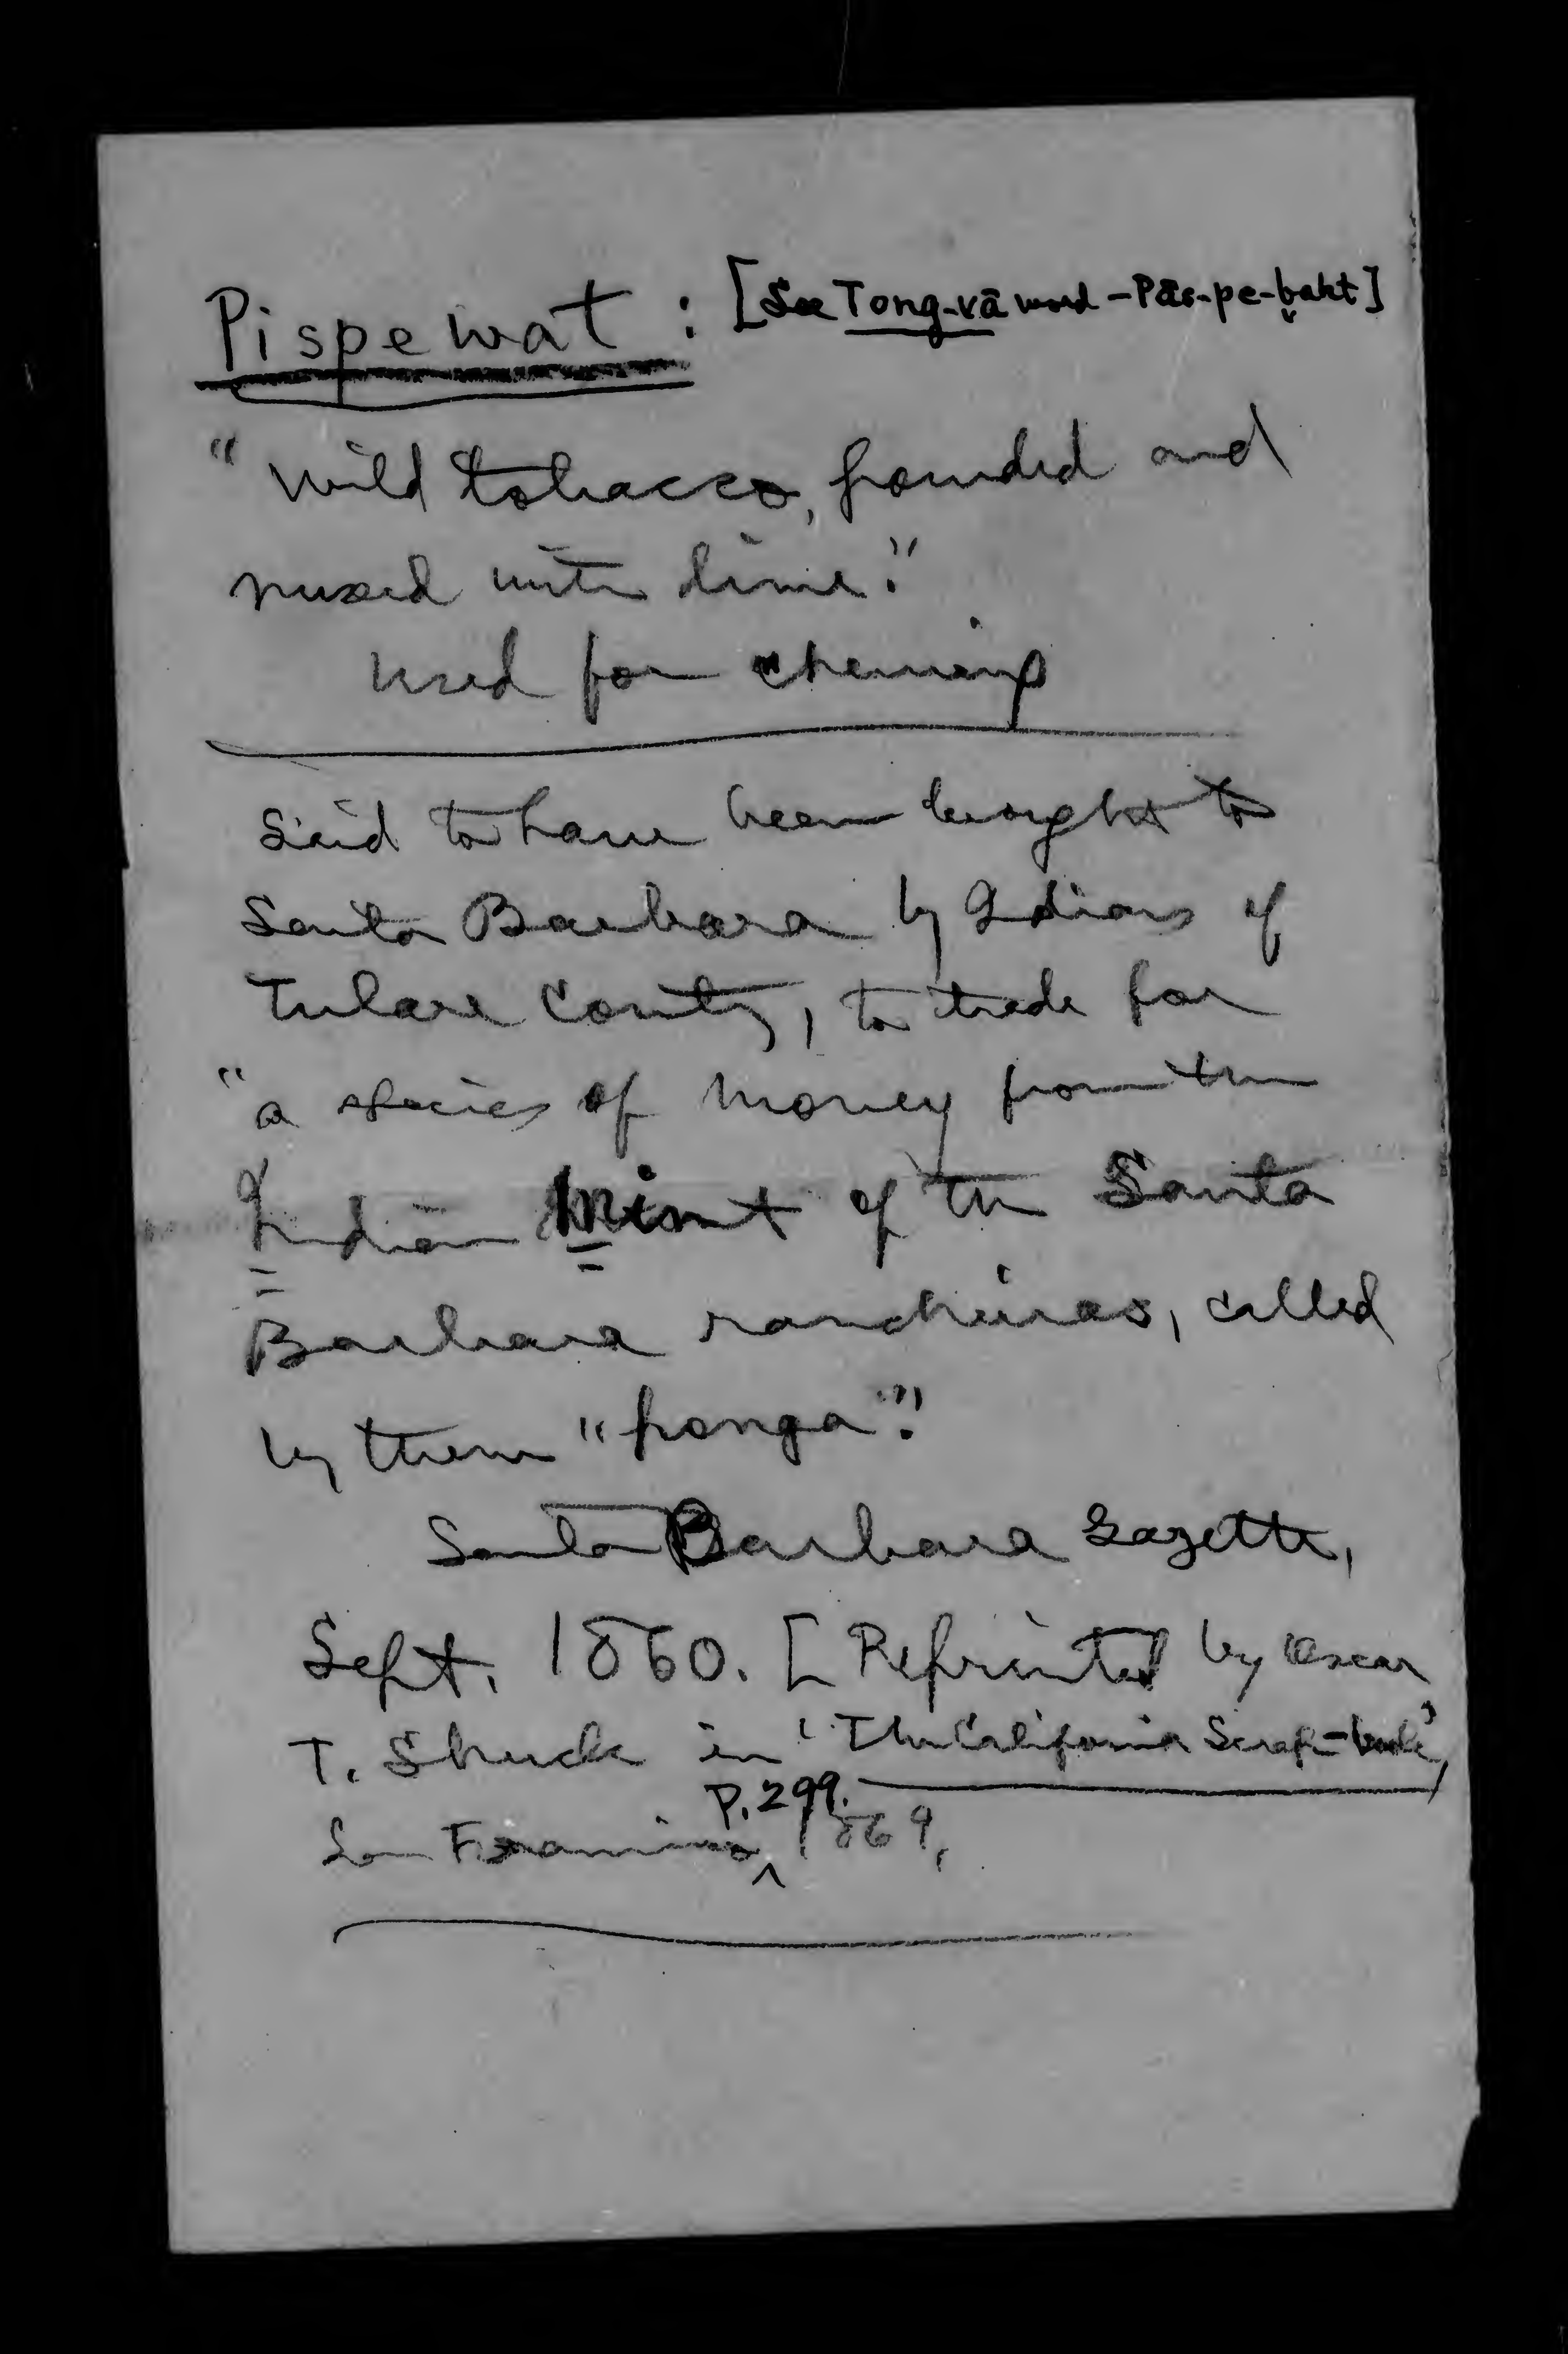 Pispewat : [See Tong-vā word - Pās-pe-baht]
"Wild tobacco, pounded and
mixed with lime."
Used for chewing
Said to have been brought to
Santa Barbara by Indians of
Tulare County, to trade for
"a species of money from the
Indian Mint of the Santa
Barbara rancherias, called
by them "ponga"."
Santa Barbara Gazette,
Sept. 1860. [Reprinted by Oscar
T. Shuck in 'The California Scrap-book',
San Francisco, p. 299. 1869.